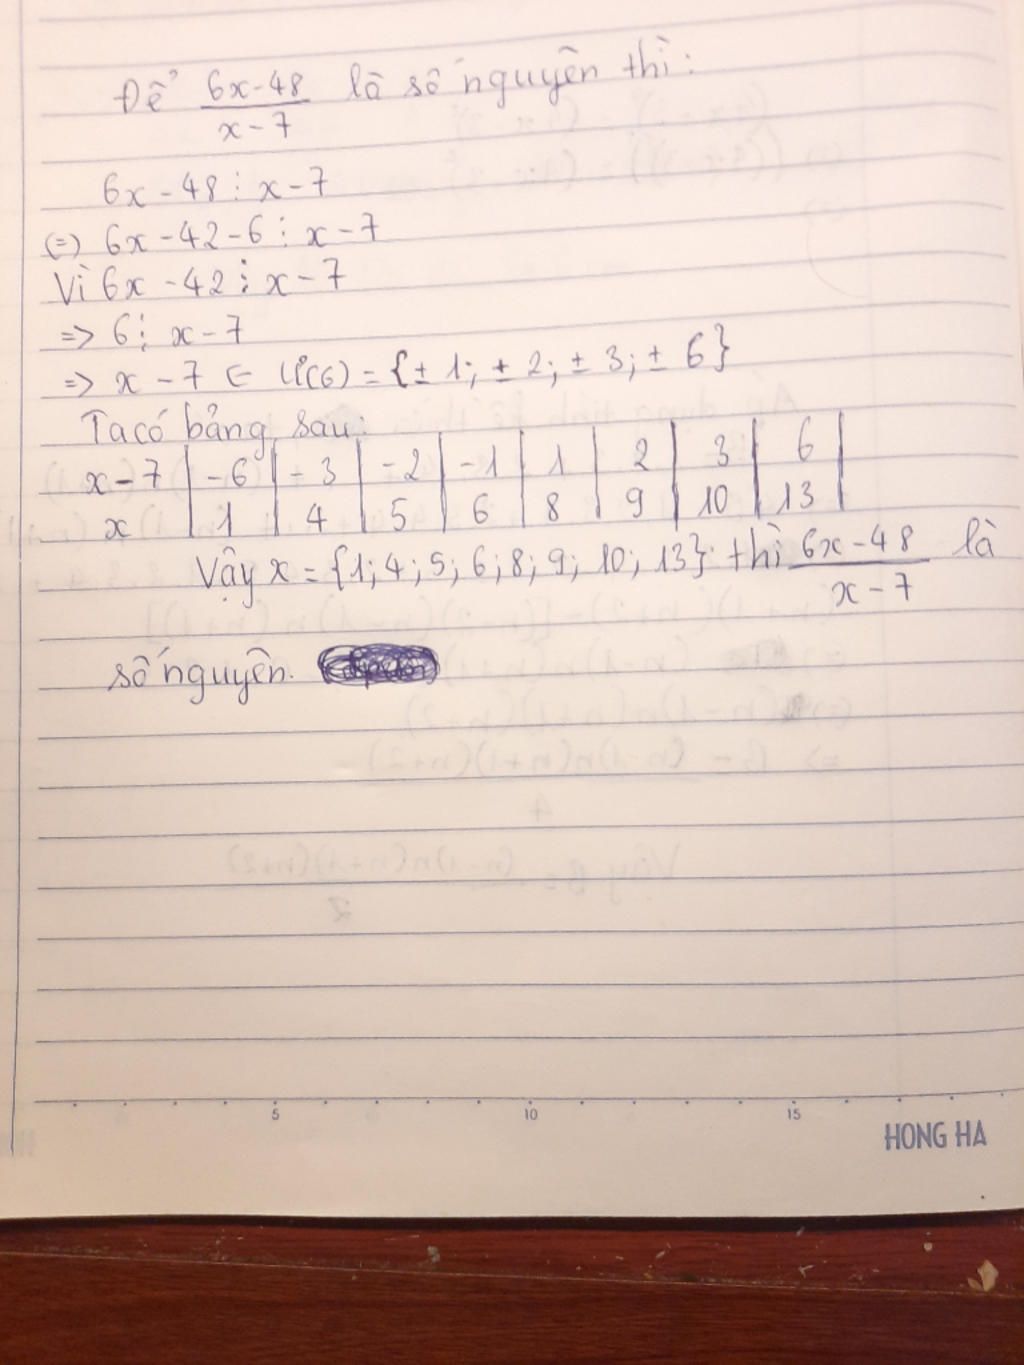 Để 6x-48/x-7 là số nguyên thì:
6x-48⋮x-7
(=) 6x-42-6⋮x-7
Vì 6x-42⋮x-7
=> 6⋮x-7
=> x-7 ∈ Ư(6)={±1;±2;±3;±6}
Ta có bảng sau:
x-7 | -6 | -3 | -2 | -1 | 1 | 2 | 3 | 6 |
x | 1 | 4 | 5 | 6 | 8 | 9 | 10 | 13 |
Vậy x={1;4;5;6;8;9;10;13} thì 6x-48/x-7 là
số nguyên.
5 10 15
HONG HA